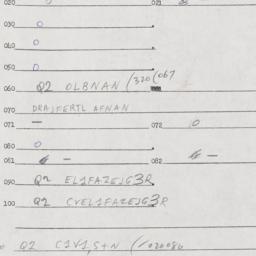 020 021
030 0
040 0
050 0
060 Q2 OLBNAN (320(067
070 DRAJFERTL AFNAN
071 — 072 0
080 0
081 — 082 —
090 Q2 EL1FAZEJG3R
100 Q2 CVEL1FAZEJG3R
Q2 C1V1,S+N